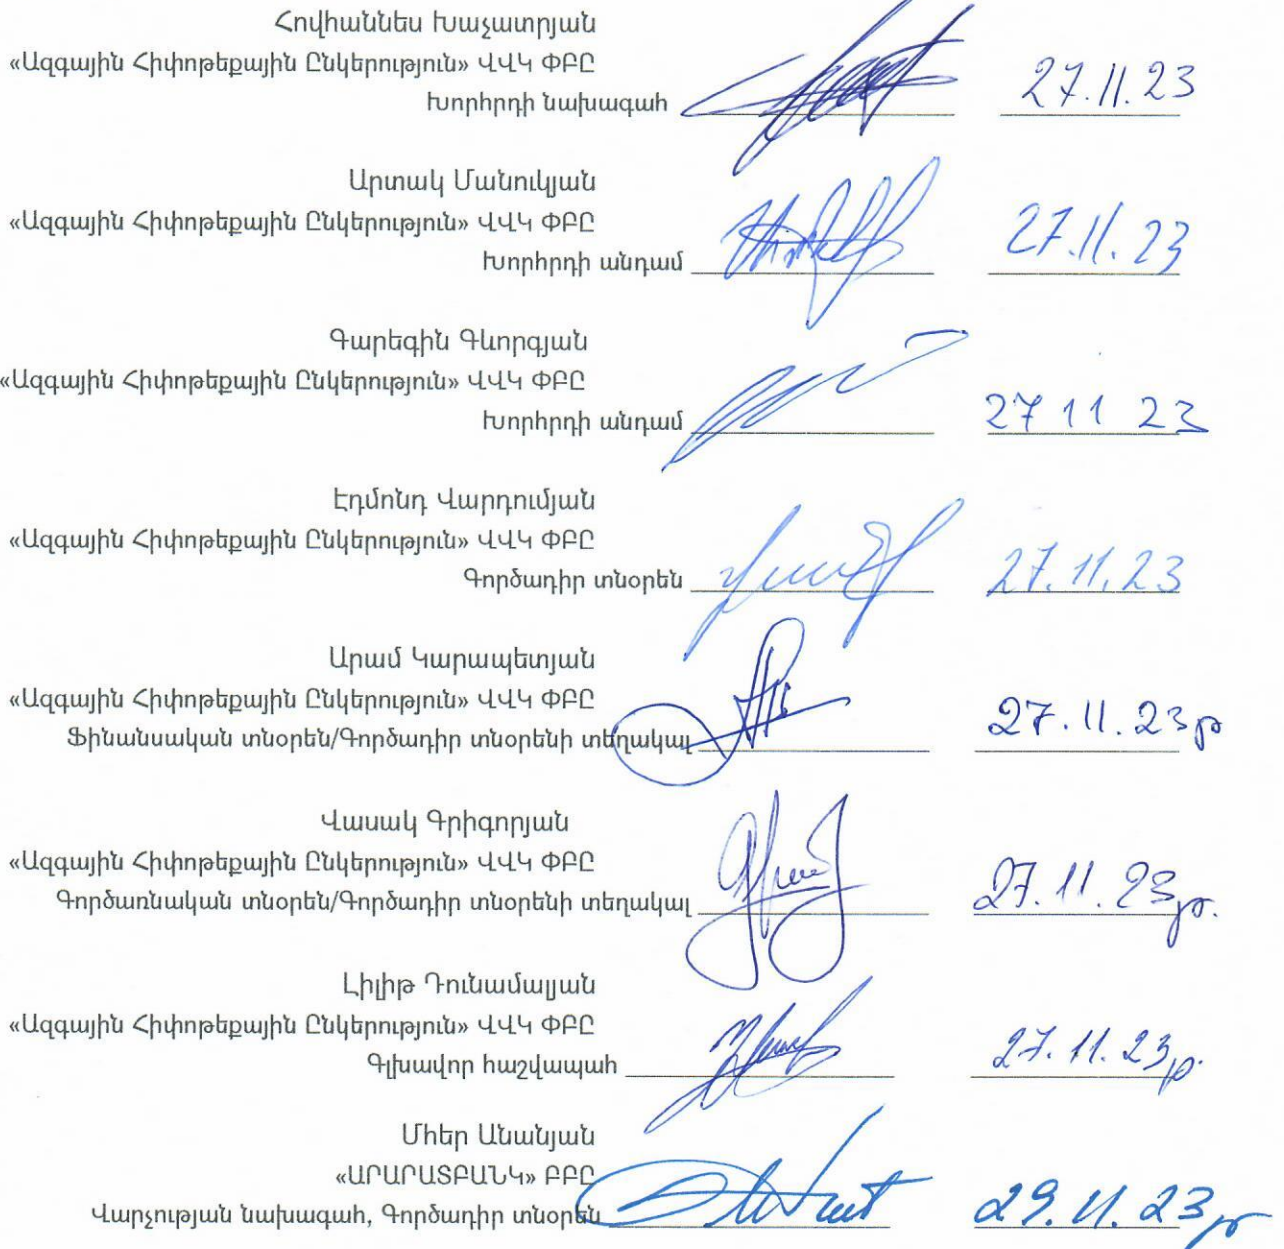 Հովհաննես Խաչատրյան
«Ազգային Հիփոթեքային Ընկերություն» ՎՎԿ ՓԲԸ
Խորհրդի նախագահ 27.11.23
Արտակ Մանուկյան
«Ազգային Հիփոթեքային Ընկերություն» ՎՎԿ ՓԲԸ
Խորհրդի անդամ 27.11.23
Գարեգին Գևորգյան
«Ազգային Հիփոթեքային Ընկերություն» ՎՎԿ ՓԲԸ
Խորհրդի անդամ 27 11 23
Էդմոնդ Վարդումյան
«Ազգային Հիփոթեքային Ընկերություն» ՎՎԿ ՓԲԸ
Գործադիր տնօրեն 27.11.23
Արամ Կարապետյան
«Ազգային Հիփոթեքային Ընկերություն» ՎՎԿ ՓԲԸ
Ֆինանսական տնօրեն/Գործադիր տնօրենի տեղակալ 27.11.23թ
Վասակ Գրիգորյան
«Ազգային Հիփոթեքային Ընկերություն» ՎՎԿ ՓԲԸ
Գործառնական տնօրեն/Գործադիր տնօրենի տեղակալ 27.11.23թ.
Լիլիթ Դունամալյան
«Ազգային Հիփոթեքային Ընկերություն» ՎՎԿ ՓԲԸ
Գլխավոր հաշվապահ 27.11.23թ.
Մհեր Անանյան
«ԱՐԱՐԱՏԲԱՆԿ» ԲԲԸ
Վարչության նախագահ, Գործադիր տնօրեն 29.11.23թ